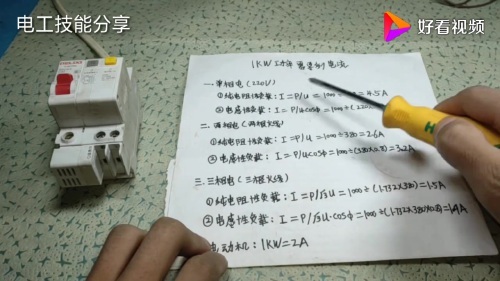 电工技能分享
好看视频
1KW功率需要的电流
一.单相电(220V)
①纯电阻性负载:I=P/U=1000=4.5A
②电感性负载:I=P/Ucosφ=1000÷(220
二.两相电(两相火线)
①纯电阻性负载:I=P/U=1000÷380=2.6A
②电感性负载:I=P/Ucosφ=1000÷(380×0.8)=3.2A
三.三相电(三根火线)
①纯电阻性负载:I=P/√3U=1000÷(1.732×380)=1.5A
②电感性负载:I=P/√3U·cosφ=1000÷(1.732×380×0.8)=1.9A
电动机:1KW=2A